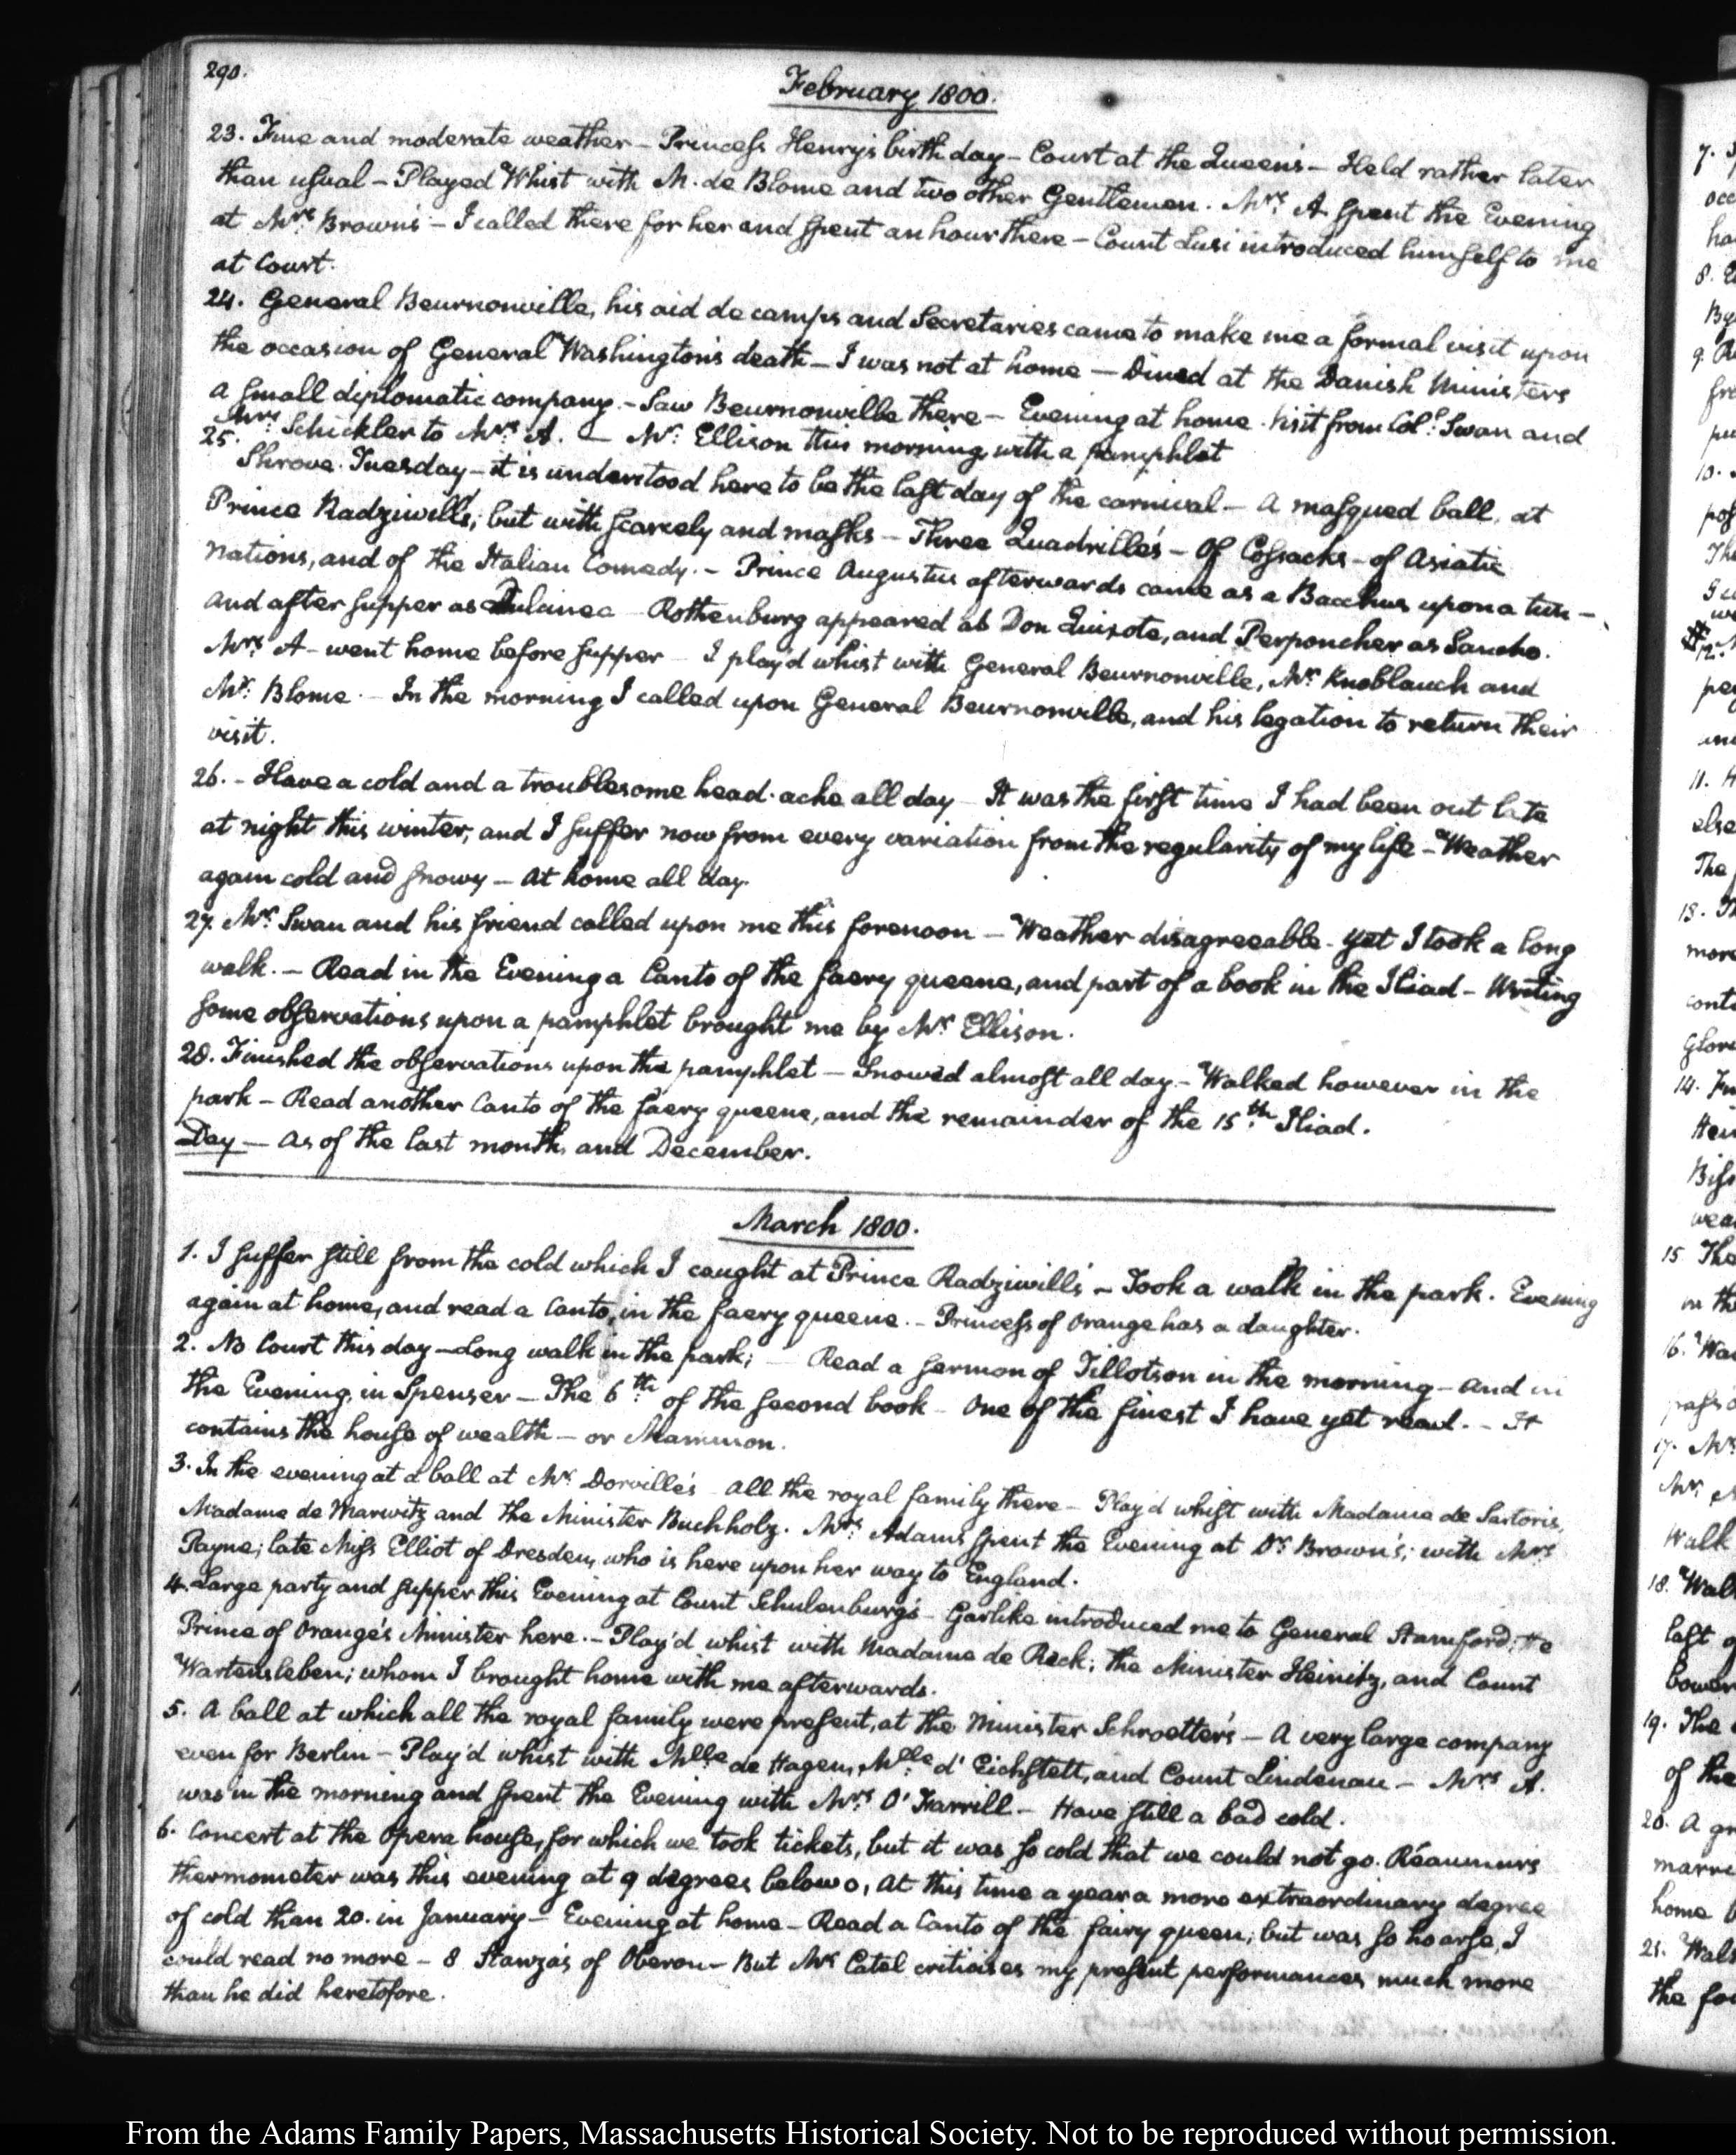 290.
February 1800.
23. Fine and moderate weather – Princess Henry's birth day – Court at the Queen's – Held rather later
than usual – Played Whist with M. de Blome and two other Gentlemen. Mrs. A. spent the Evening
at Mrs. Brown's – I called there for her and spent an hour there – Count Lusi introduced himself to me
at Court.
24. General Beurnonville, his aid de camps and Secretaries came to make me a formal visit upon
the occasion of General Washington's death – I was not at home – Dined at the Danish Ministers
a small diplomatic company – Saw Beurnonville there – Evening at home. Visit from Coll. Swan and
Mrs. Schickler to Mrs. A. – Mr. Ellison this morning with a pamphlet
25. Shrove Tuesday – it is understood here to be the last day of the carnival – A masqued ball, at
Prince Radziwill's; but with scarcely and masks – Three Quadrille's – Of Cossacks – of Asiatic
Nations, and of the Italian Comedy. – Prince Augustus afterwards came as a Bacchus upon a tun –
and after supper as Dulcinea – Rothenburg appeared as Don Quixote, and Perponcher as Sancho.
Mrs. A – went home before supper – I play'd whist with General Beurnonville, Mr. Knoblauch and
Mr. Blome. – In the morning I called upon General Beurnonville, and his legation to return their
visit.
26. – Have a cold and a troublesome head-ache all day – It was the first time I had been out late
at night this winter, and I suffer now from every variation from the regularity of my life – Weather
again cold and snowy – At home all day.
27. Mr. Swan and his friend called upon me this forenoon – Weather disagreeable – yet I took a long
walk. – Read in the Evening a Canto of the faery queene, and part of a book in the Iliad – Writing
some observations upon a pamphlet brought me by Mr. Ellison.
28. Finished the observations upon the pamphlet – Snowed almost all day – Walked however in the
park – Read another Canto of the faery queene, and the remainder of the 15th. Iliad.
Day – As of the last month, and December.
March 1800.
1. I suffer still from the cold which I caught at Prince Radziwill's – Took a walk in the park. Evening
again at home, and read a Canto, in the faery queene. – Princess of Orange has a daughter.
2. No Court this day – Long walk in the park; – Read a sermon of Tillotson in the morning – and in
the Evening, in Spenser – The 6th. of the second book – One of the finest I have yet read. – It
contains the house of wealth – or Mammon.
3. In the evening at a ball at Mr. Dorville's – All the royal family there – Play'd whist with Madame de Sartoris,
Madame de Marwitz and the Minister Buchholz. Mrs. Adams spent the Evening at Dr. Brown's; with Mrs.
Payne; late Miss Elliot of Dresden, who is here upon her way to England.
4. Large party and supper this Evening at Count Schulenburg's – Garlike introduced me to General Stamford; the
Prince of Orange's Minister here. – Play'd whist with Madame de Reck; the Minister Heinitz, and Count
Wartensleben; whom I brought home with me afterwards.
5. A ball at which all the royal family were present, at the Minister Schroetter's – A very large company
even for Berlin – Play'd whist with Mlle. de Hagen, Mlle. d'Eichstett, and Count Lindenau – Mrs. A.
was in the morning and spent the Evening with Mrs. O'Farrill – Have still a bad cold.
6. Concert at the Opera house, for which we took tickets, but it was so cold that we could not go. Réaumurs
thermometer was this evening at 9 degrees below 0, at this time a year a more extraordinary degree
of cold than 20. in January – Evening at home – Read a Canto of the fairy queen; but was so hoarse, I
could read no more – 8 Stanza's of Oberon – But Mr. Catel criticises my present performances much more
than he did heretofore.
From the Adams Family Papers, Massachusetts Historical Society. Not to be reproduced without permission.